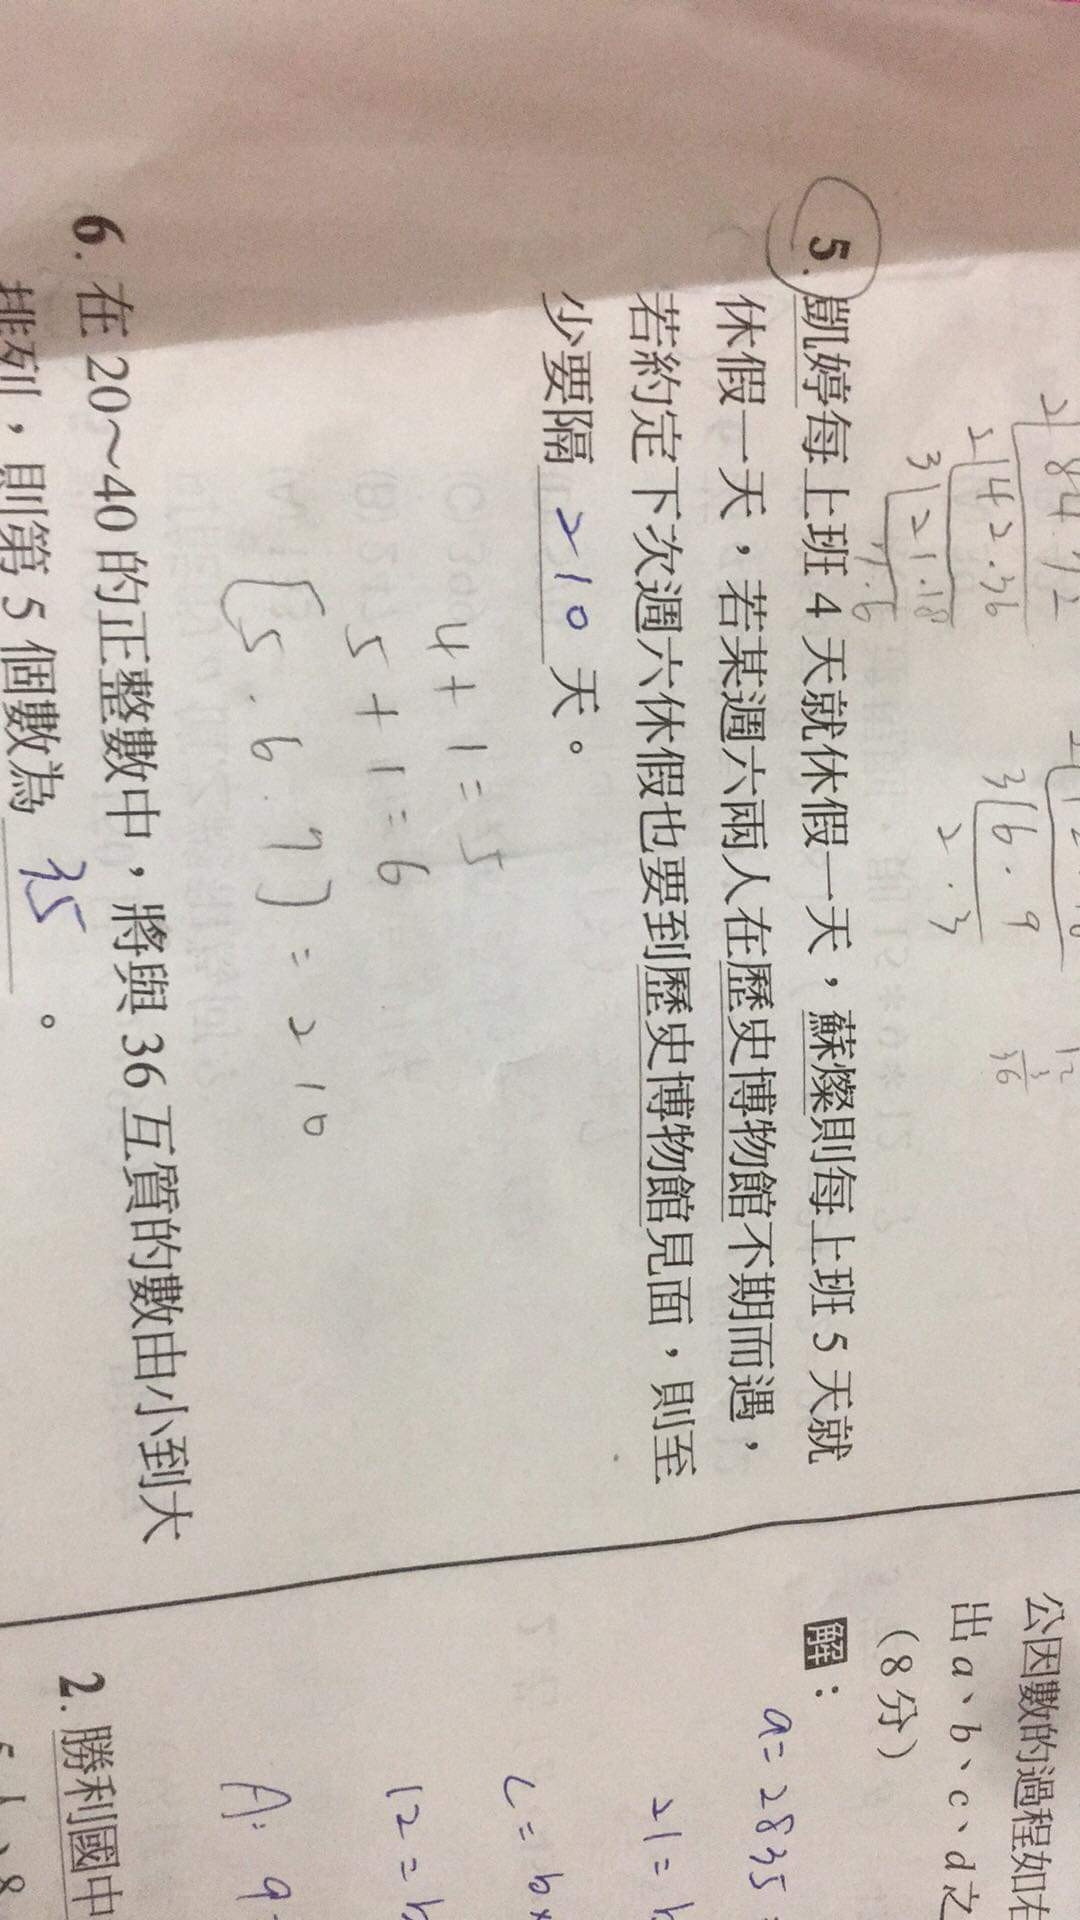 2 84 72
2 42.36
3 21.18
7.6
3 6.9
2.3
5. 凱婷每上班 4 天就休假一天,蘇燦則每上班 5 天就
休假一天,若某週六兩人在歷史博物館不期而遇,
若約定下次週六休假也要到歷史博物館見面,則至
少要隔 210 天。
4+1=5
5+1=6
[5.6.7]=210
6. 在 20~40 的正整數中,將與 36 互質的數由小到大
排列,則第 5 個數為 35 。
公因數的過程如右
出 a、b、c、d 之
(8分)
解:
a=2835=
21=b
c=b×
12=b
A:
2. 勝利國中